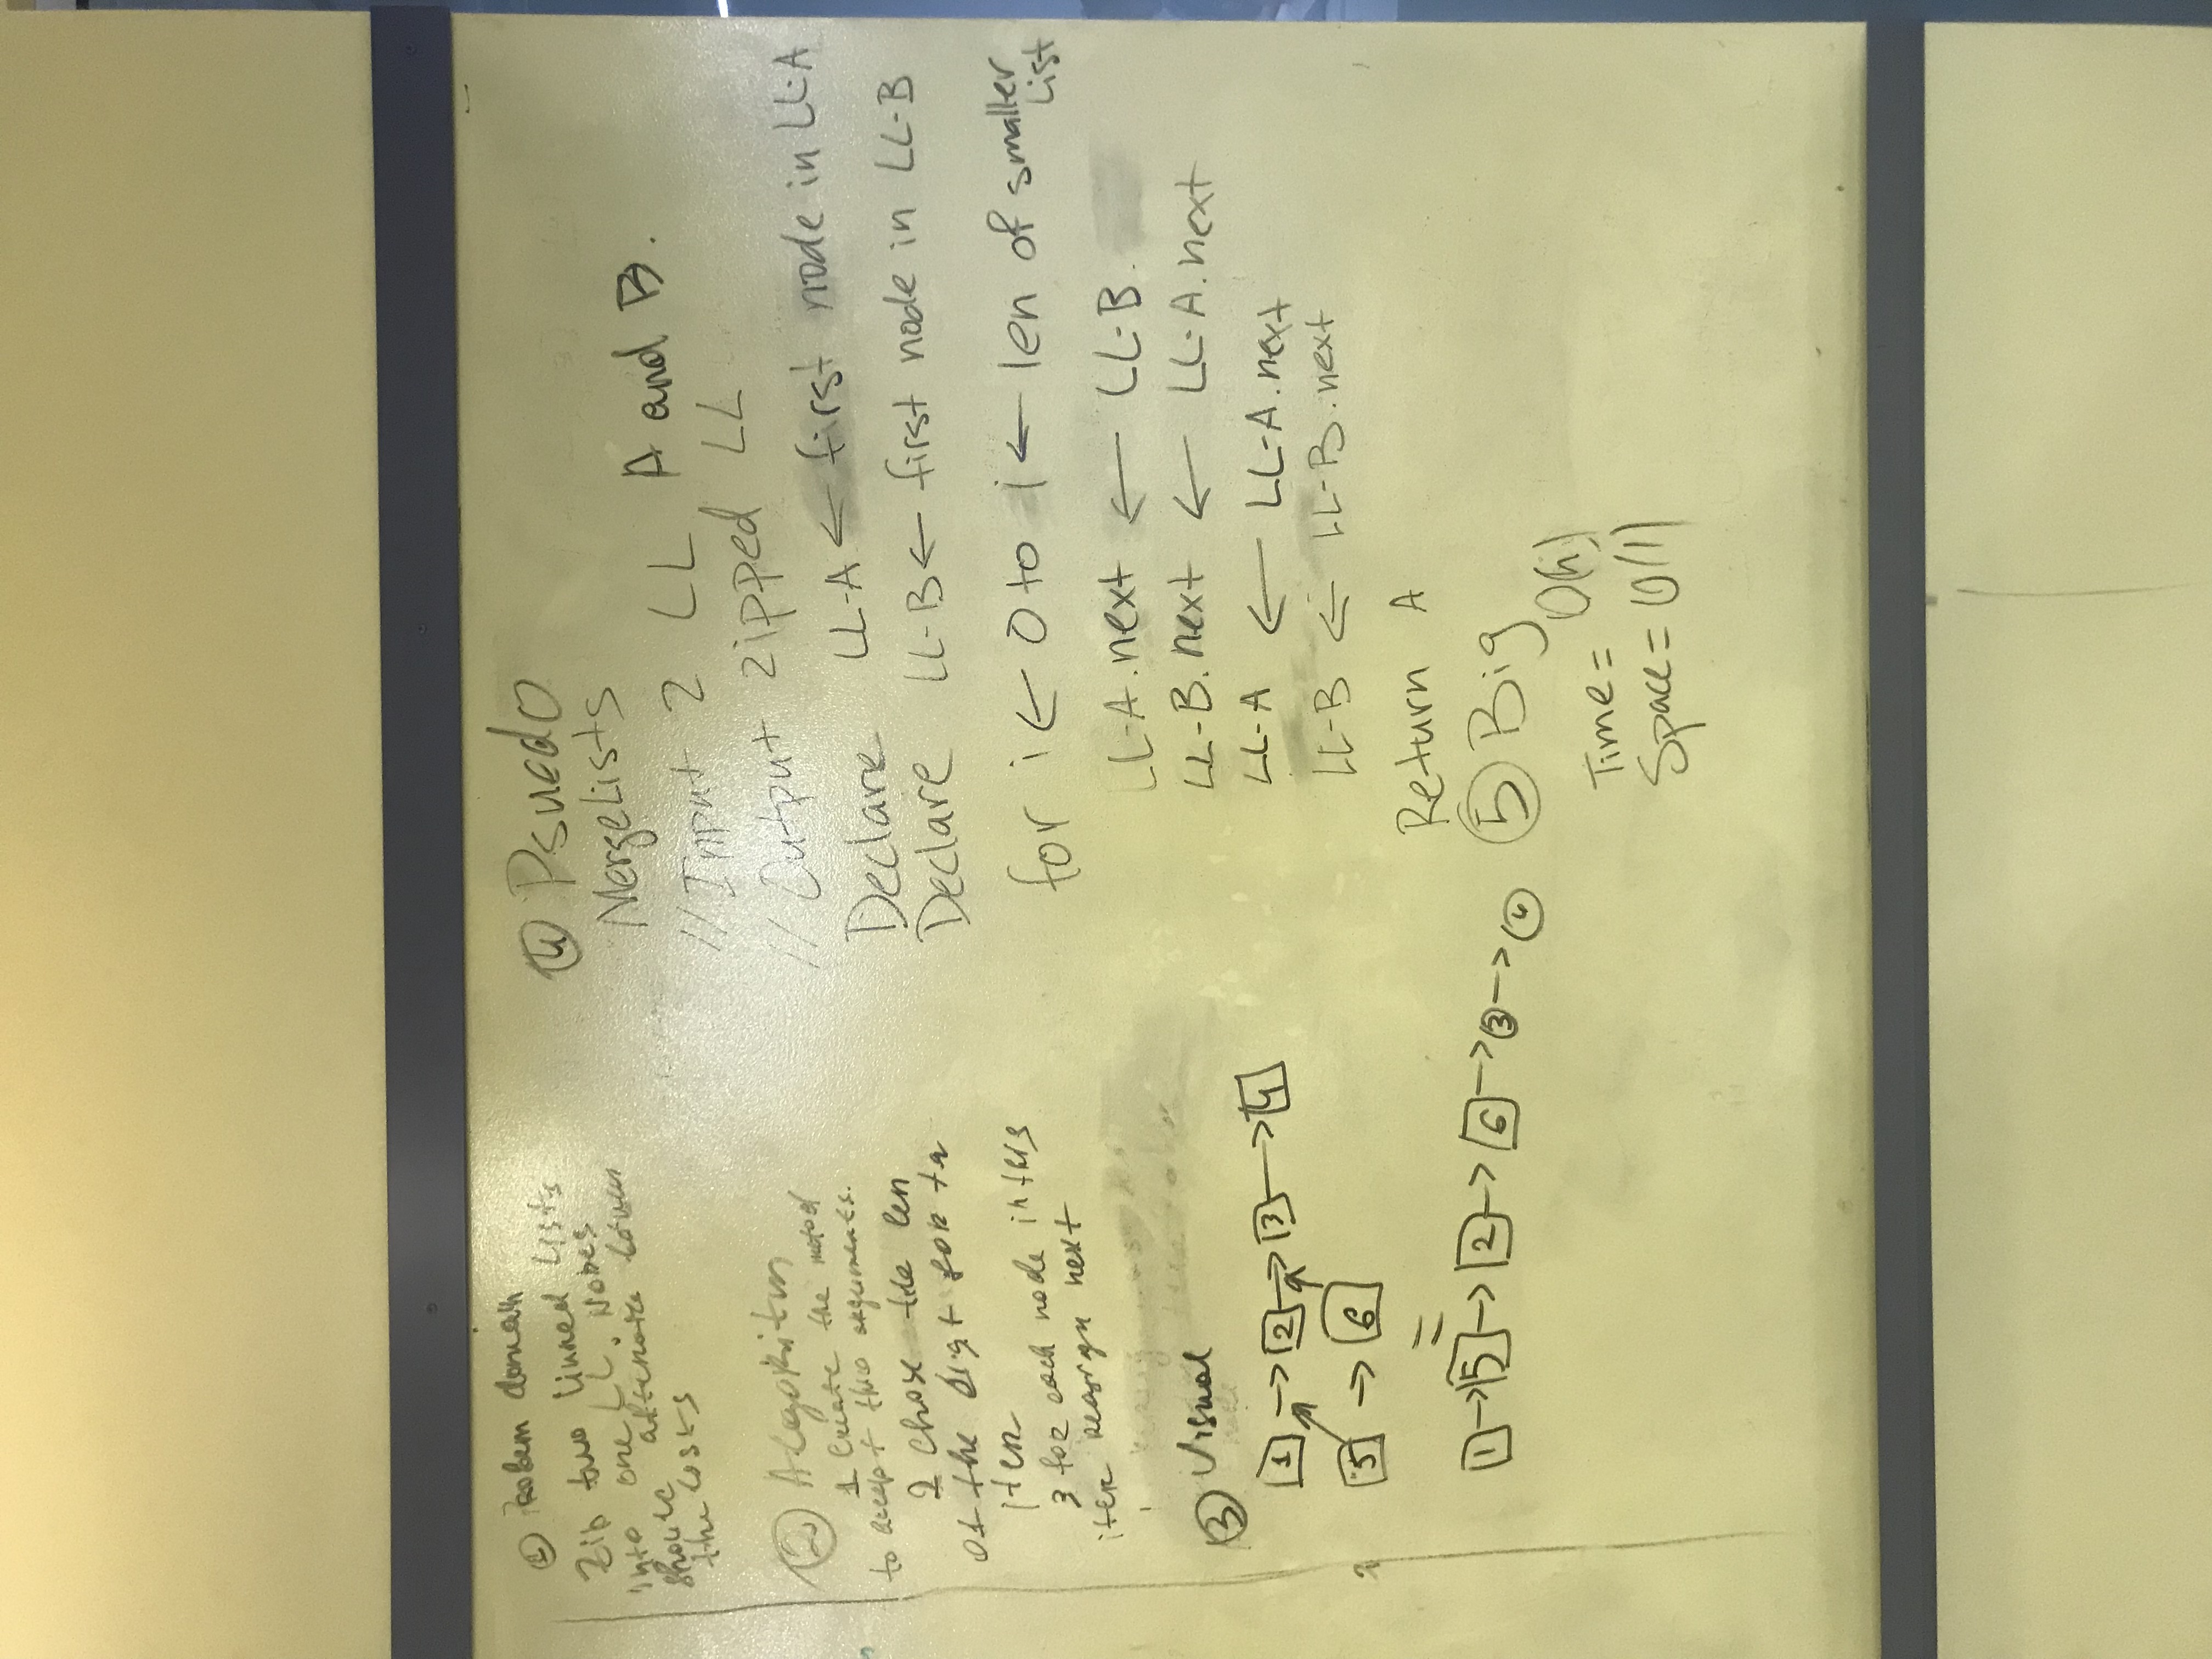 ① Problem domain
Zip two linked Lists
into one LL. Nodes
should alternate between
the Lists
② Algoritm
1 Create the metod
to accept two arguments.
2 chose the len
of the list for
iter
3 for each node in this
iter reasign next
③ Visual
1 → 2 → 3 → 4
5 → 6
=
1 → 5 → 2 → 6 → 3 → 4
④ Psuedo
MergeLists
// Input 2 LL A and B.
// Output zipped LL
Declare LL-A ← first node in LL-A
Declare LL-B ← first node in LL-B
for i ← 0 to i ← len of smaller
List
LL-A.next ← LL-B.
LL-B.next ← LL-A.next
LL-A ← LL-A.next
LL-B ← LL-B.next
Return A
⑤ Big
Time = O(n)
Space = O(1)